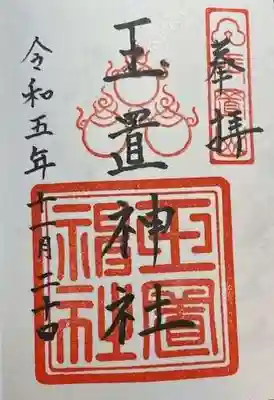 奉拝
玉置神社
令和五年十一月二十日
玉置神社